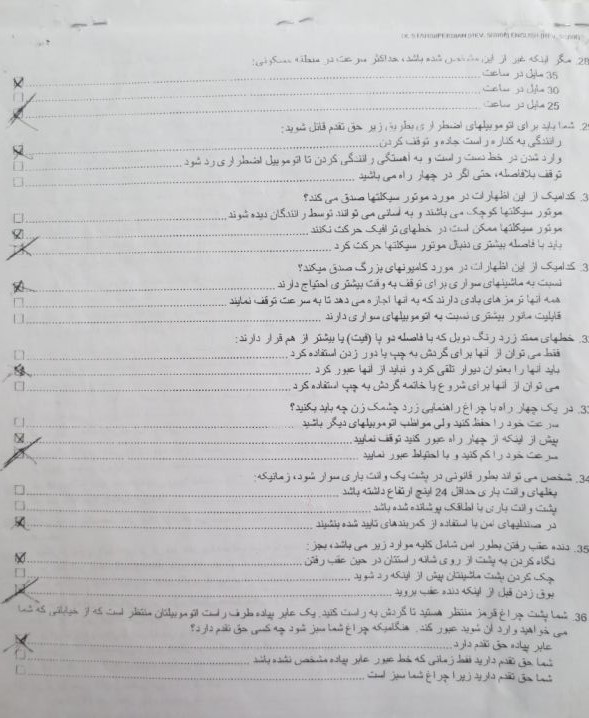 DL 5 FARSI/PERSIAN (REV. 5/2005) ENGLISH (REV. 5/2005)
28. مگر اینکه غیر از این مشخص شده باشد، حداکثر سرعت در منطقه مسکونی:
35 مایل در ساعت
30 مایل در ساعت
25 مایل در ساعت
29. شما باید برای اتوموبیلهای اضطراری بطریق زیر حق تقدم قائل شوید:
رانندگی به کناره راست جاده و توقف کردن
وارد شدن در خط دست راست و به آهستگی رانندگی کردن تا اتوموبیل اضطراری رد شود
توقف بلافاصله، حتی اگر در چهار راه می باشید
3. کدامیک از این اظهارات در مورد موتور سیکلتها صدق می کند؟
موتور سیکلتها کوچک می باشند و به آسانی می توانند توسط رانندگان دیده شوند
موتور سیکلتها ممکن است در خطهای ترافیک حرکت نکنند
باید با فاصله بیشتری دنبال موتور سیکلتها حرکت کرد
3. کدامیک از این اظهارات در مورد کامیونهای بزرگ صدق میکند؟
نسبت به ماشینهای سواری برای توقف به وقت بیشتری احتیاج دارند
همه آنها ترمزهای بادی دارند که به آنها اجازه می دهد تا به سرعت توقف نمایند
قابلیت مانور بیشتری نسبت به اتوموبیلهای سواری دارند
3. خطهای ممتد زرد رنگ دوبل که با فاصله دو پا (فیت) یا بیشتر از هم قرار دارند:
فقط می توان از آنها برای گردش به چپ یا دور زدن استفاده کرد
باید آنها را بعنوان دیوار تلقی کرد و نباید از آنها عبور کرد
می توان از آنها برای شروع یا خاتمه گردش به چپ استفاده کرد
33. در یک چهار راه با چراغ راهنمایی زرد چشمک زن چه باید بکنید؟
سرعت خود را حفظ کنید ولی مواظب اتوموبیلهای دیگر باشید
پیش از اینکه از چهار راه عبور کنید توقف نمایید
سرعت خود را کم کنید و با احتیاط عبور نمایید
34. شخص می تواند بطور قانونی در پشت یک وانت باری سوار شود، زمانیکه:
بغلهای وانت باری حداقل 24 اینچ ارتفاع داشته باشد
پشت وانت باری با اطاقک پوشانده شده باشد
در صندلیهای امن با استفاده از کمربندهای تایید شده بنشیند
35. دنده عقب رفتن بطور امن شامل کلیه موارد زیر می باشد، بجز:
نگاه کردن به پشت از روی شانه راستتان در حین عقب رفتن
چک کردن پشت ماشینتان پیش از اینکه رد شوید
بوق زدن قبل از اینکه دنده عقب بروید
36. شما پشت چراغ قرمز منتظر هستید تا گردش به راست کنید. یک عابر پیاده طرف راست اتوموبیلتان منتظر است که از خیابانی که شما
می خواهید وارد آن شوید عبور کند. هنگامیکه چراغ شما سبز شود چه کسی حق تقدم دارد؟
عابر پیاده حق تقدم دارد
شما حق تقدم دارید فقط زمانی که خط عبور عابر پیاده مشخص نشده باشد
شما حق تقدم دارید زیرا چراغ شما سبز است